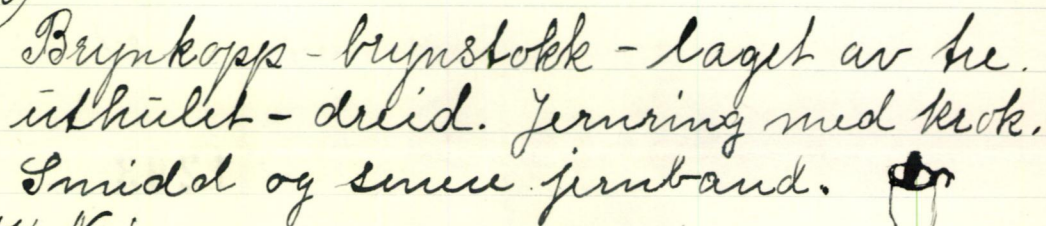 Brynkopp - brynstokk - laget av tre.
uthulet - dreid. Jernring med krok.
Smidd og jernband.